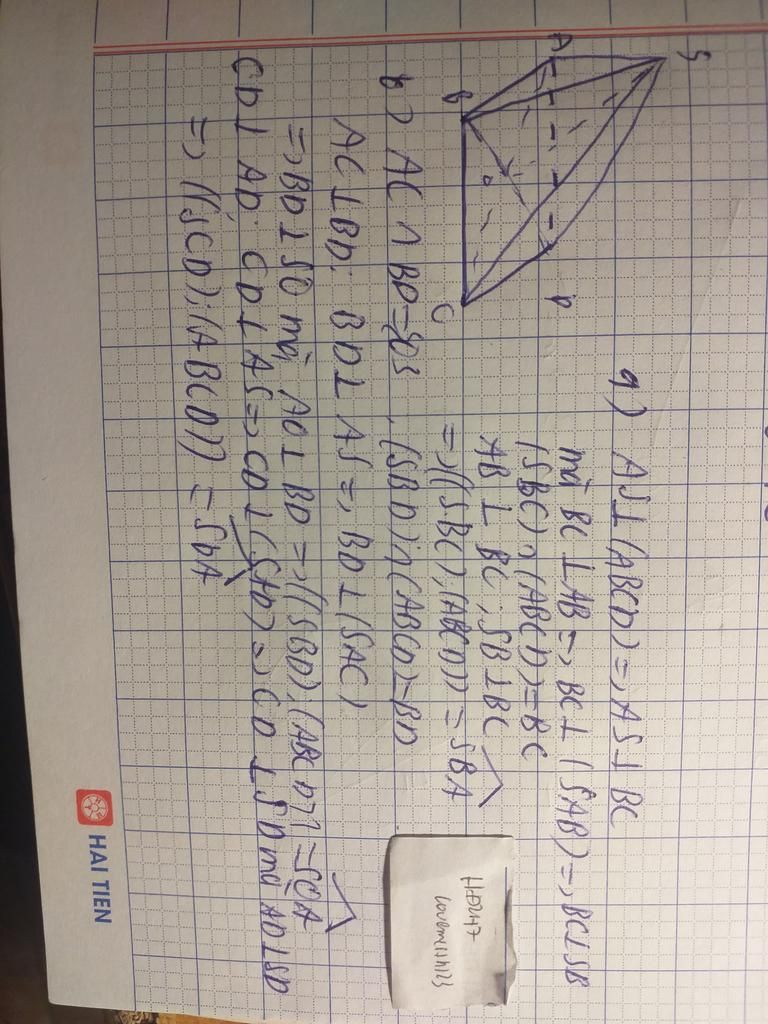 S
A
B
O
D
C
a) AS⊥(ABCD) => AS⊥BC
mà BC⊥AB => BC⊥(SAB) => BC⊥SB
(SBC)∩(ABCD)=BC
AB⊥BC; SB⊥BC
=> ((SBC),(ABCD)) = SBA
b) AC∩BD={O}, (SBD)∩(ABCD)=BD
AC⊥BD; BD⊥AS => BD⊥(SAC)
=> BD⊥SO mà AO⊥BD => ((SBD);(ABCD)) = SOA
CD⊥AD; CD⊥AS => CD⊥(SAD) => CD⊥SD mà AD⊥SD
=> ((SCD);(ABCD)) = SDA
HD247
HAI TIEN